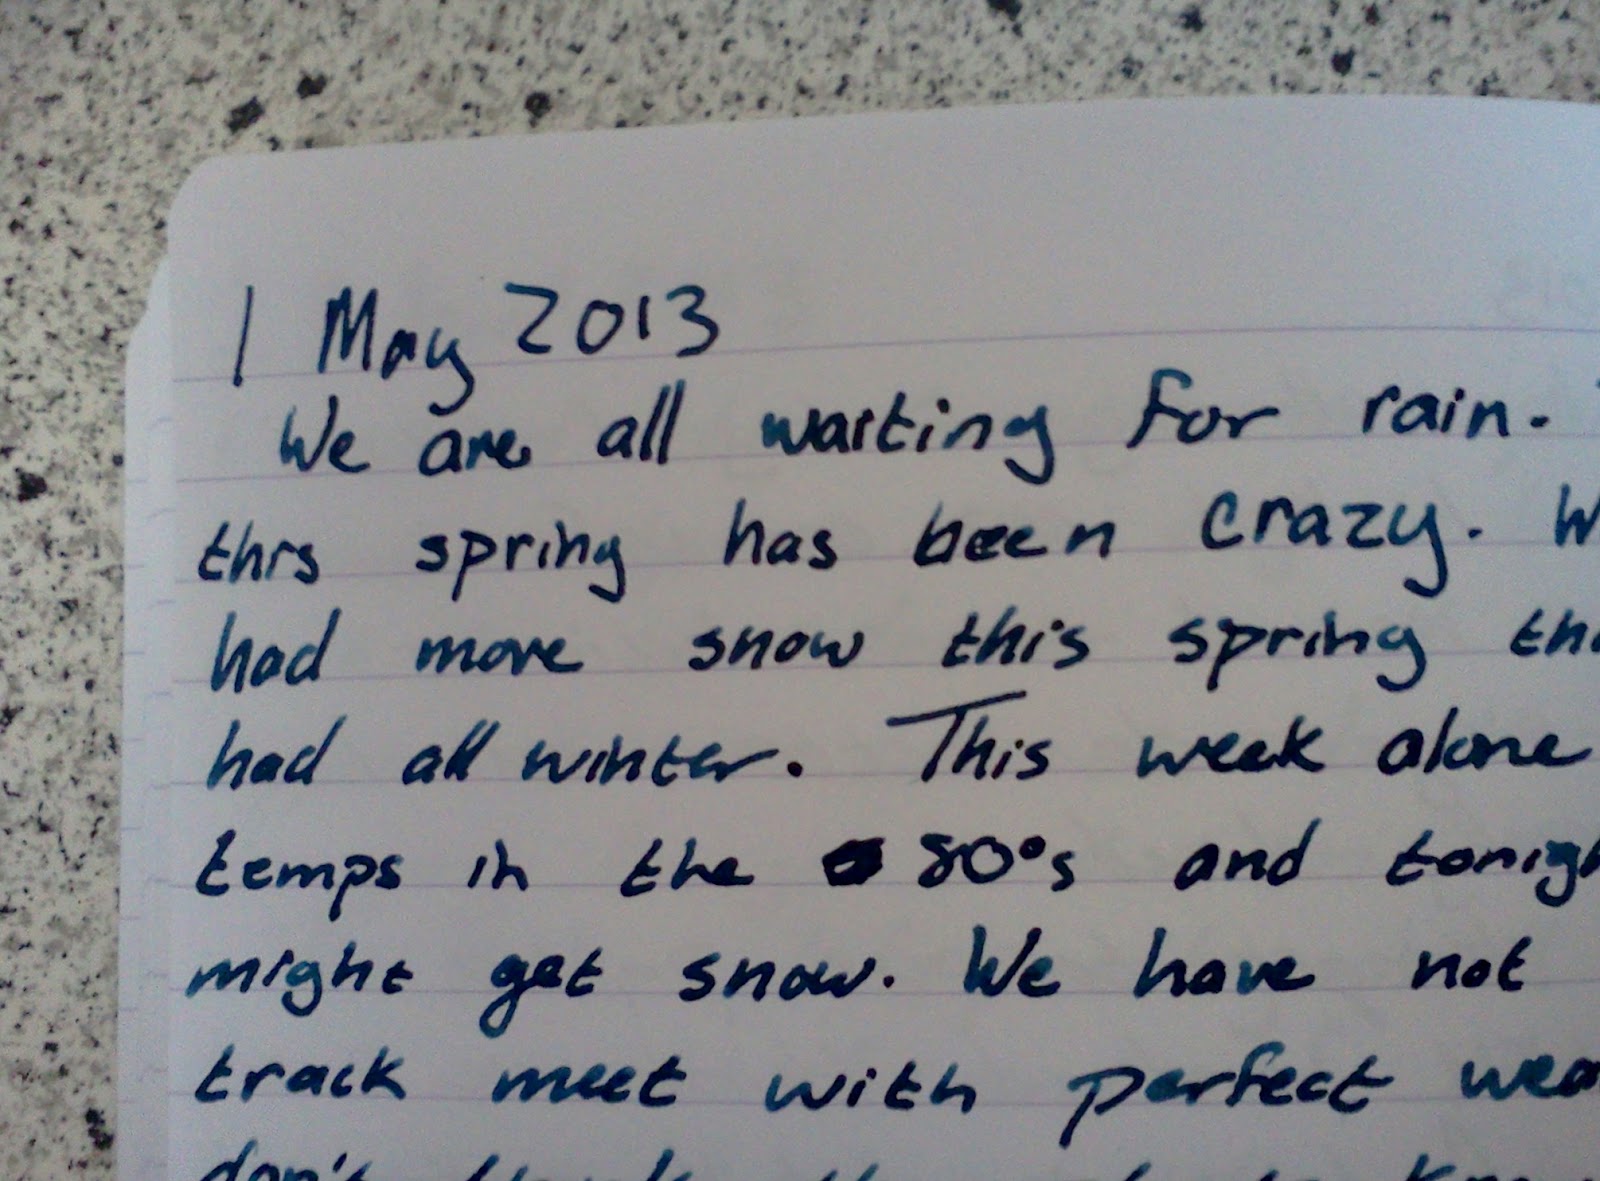 1 May 2013
We are all waiting for rain.
this spring has been crazy. W
had more snow this spring tha
had all winter. This week alone
temps in the 80°s and tonigh
might get snow. We have not
track meet with perfect wea
don't